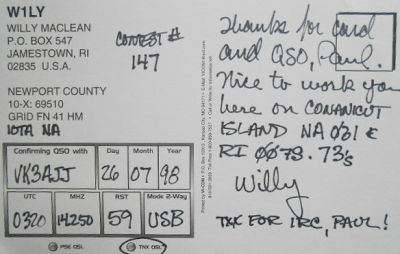 W1LY
WILLY MACLEAN
P.O. BOX 547
JAMESTOWN, RI
02835 U.S.A.
CONTEST #
147
NEWPORT COUNTY
10-X: 69510
GRID FN 41 HM
IOTA NA
Confirming QSO with Day Month Year
VK3AJJ 26 07 98
UTC MHZ RST Mode 2-Way
0320 14250 59 USB
PSE QSL TNX QSL
Thanks for card
and QSO, Paul.
Nice to work you
here on CONANICUT
ISLAND NA 031 &
RI 007S. 73's
Willy
TNX FOR IRC, PAUL!